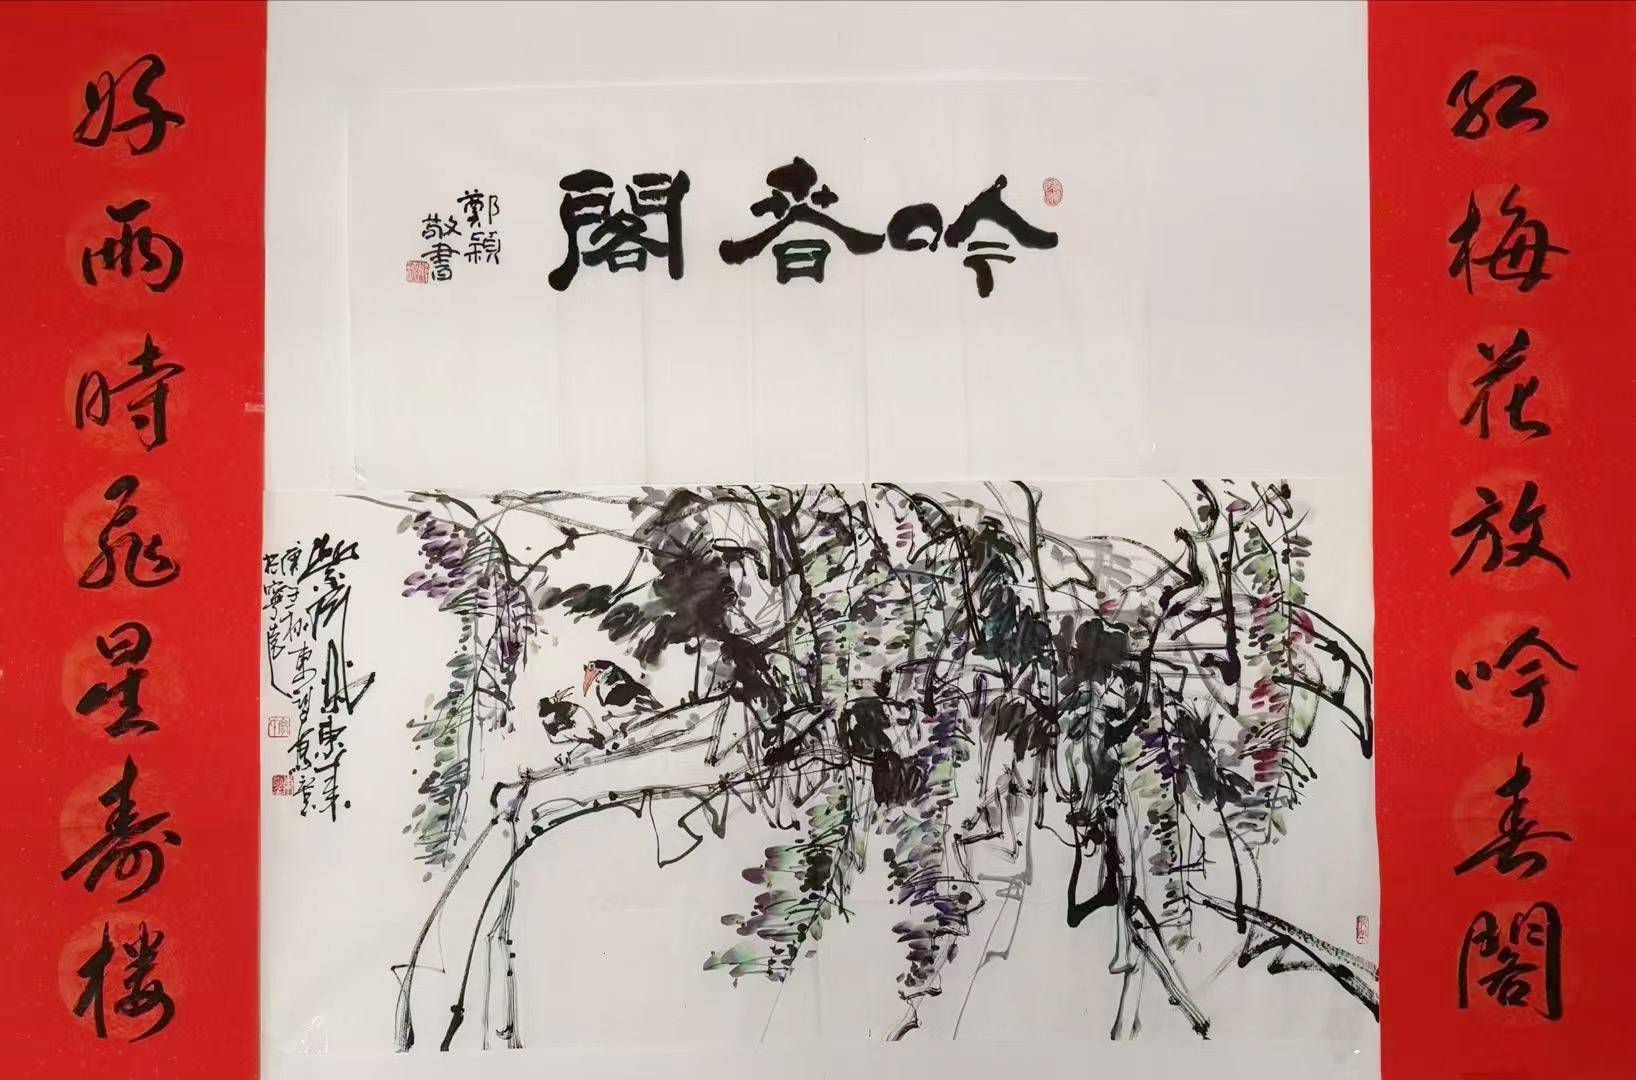 紅梅花放吟春閣
好雨時飛星壽樓
吟春閣
鄭穎
敬書
紫氣東來